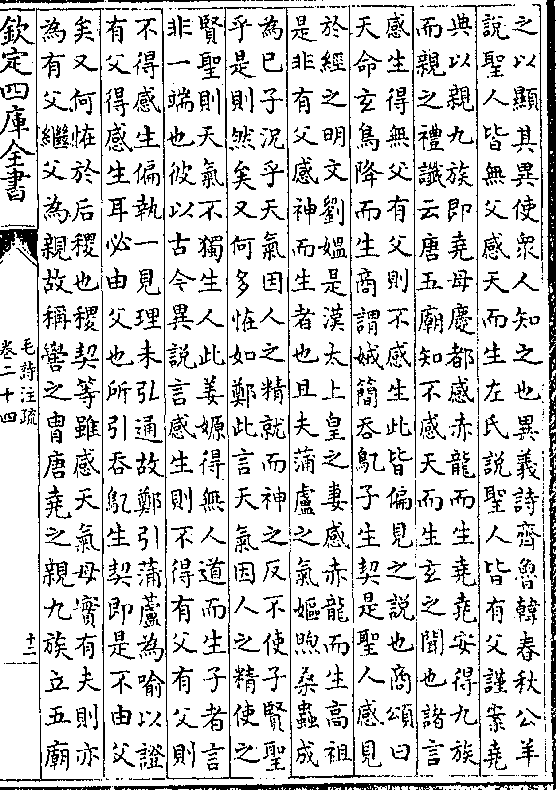 之以顯其異使衆人知之也異義詩齊魯韓春秋公羊
說聖人皆無父感天而生左氏說聖人皆有父謹案堯
典以親九族即堯母慶都感赤龍而生堯堯安得九族
而親之禮讖云唐五廟知不感天而生玄之聞也諸言
感生得無父有父則不感生此皆偏見之說也商頌曰
天命玄鳥降而生商謂娀簡吞鳦子生契是聖人感見
於經之明文劉媪是漢太上皇之妻感赤龍而生高祖
是非有父感神而生者也且夫蒲盧之氣嫗煦桑蟲成
為已子況乎天氣因人之精就而神之反不使子賢聖
乎是則然矣又何多怪如鄭此言天氣因人之精使之
賢聖則天氣不獨生人此姜嫄得無人道而生子者言
非一端也彼以古今異說言感生則不得有父有父則
不得感生偏執一見理未弘通故鄭引蒲蘆為喻以證
有父得感生耳必由父也所引吞鳦生契即是不由父
矣又何怪於后稷也稷契等雖感天氣母實有夫則亦
為有父繼父為親故稱嚳之胄唐堯之親九族立五廟
欽定四庫全書
毛詩注疏
卷二十四
十二